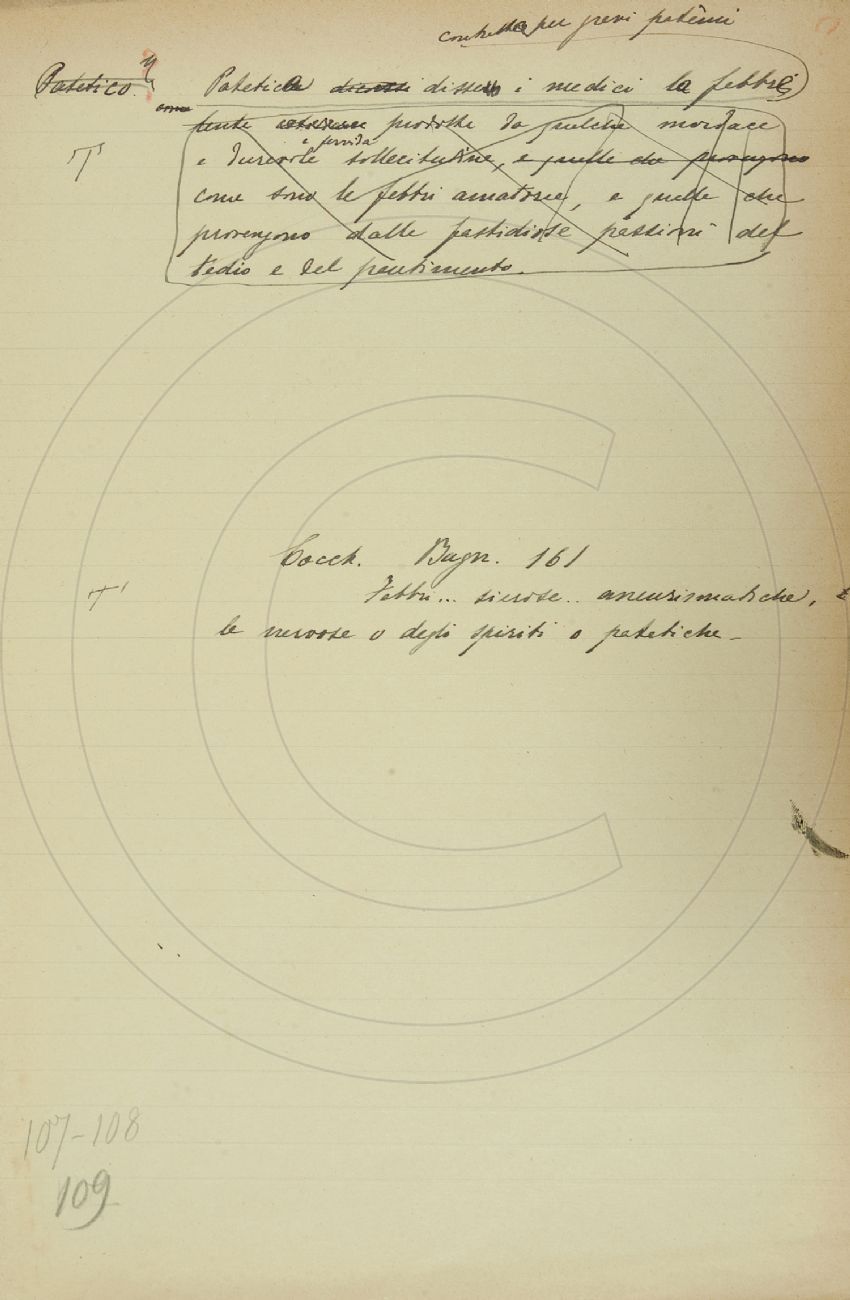 contratta per gravi patêmi
Patetico. Patetica dicensi dissero i medici la febbre
come
tente prodotte da qualche mordace
e fervida
T e durevole sollecitudine, e quelle che provengono
come sono le febbri amatorie, e quelle che
provengono dalle fastidiose passioni del
tedio e del pentimento.
Cocch. Bagn. 161
T Febbri... sierose.. aneurismatiche, e
le nervose o degli spiriti o patetiche –
107-108
109